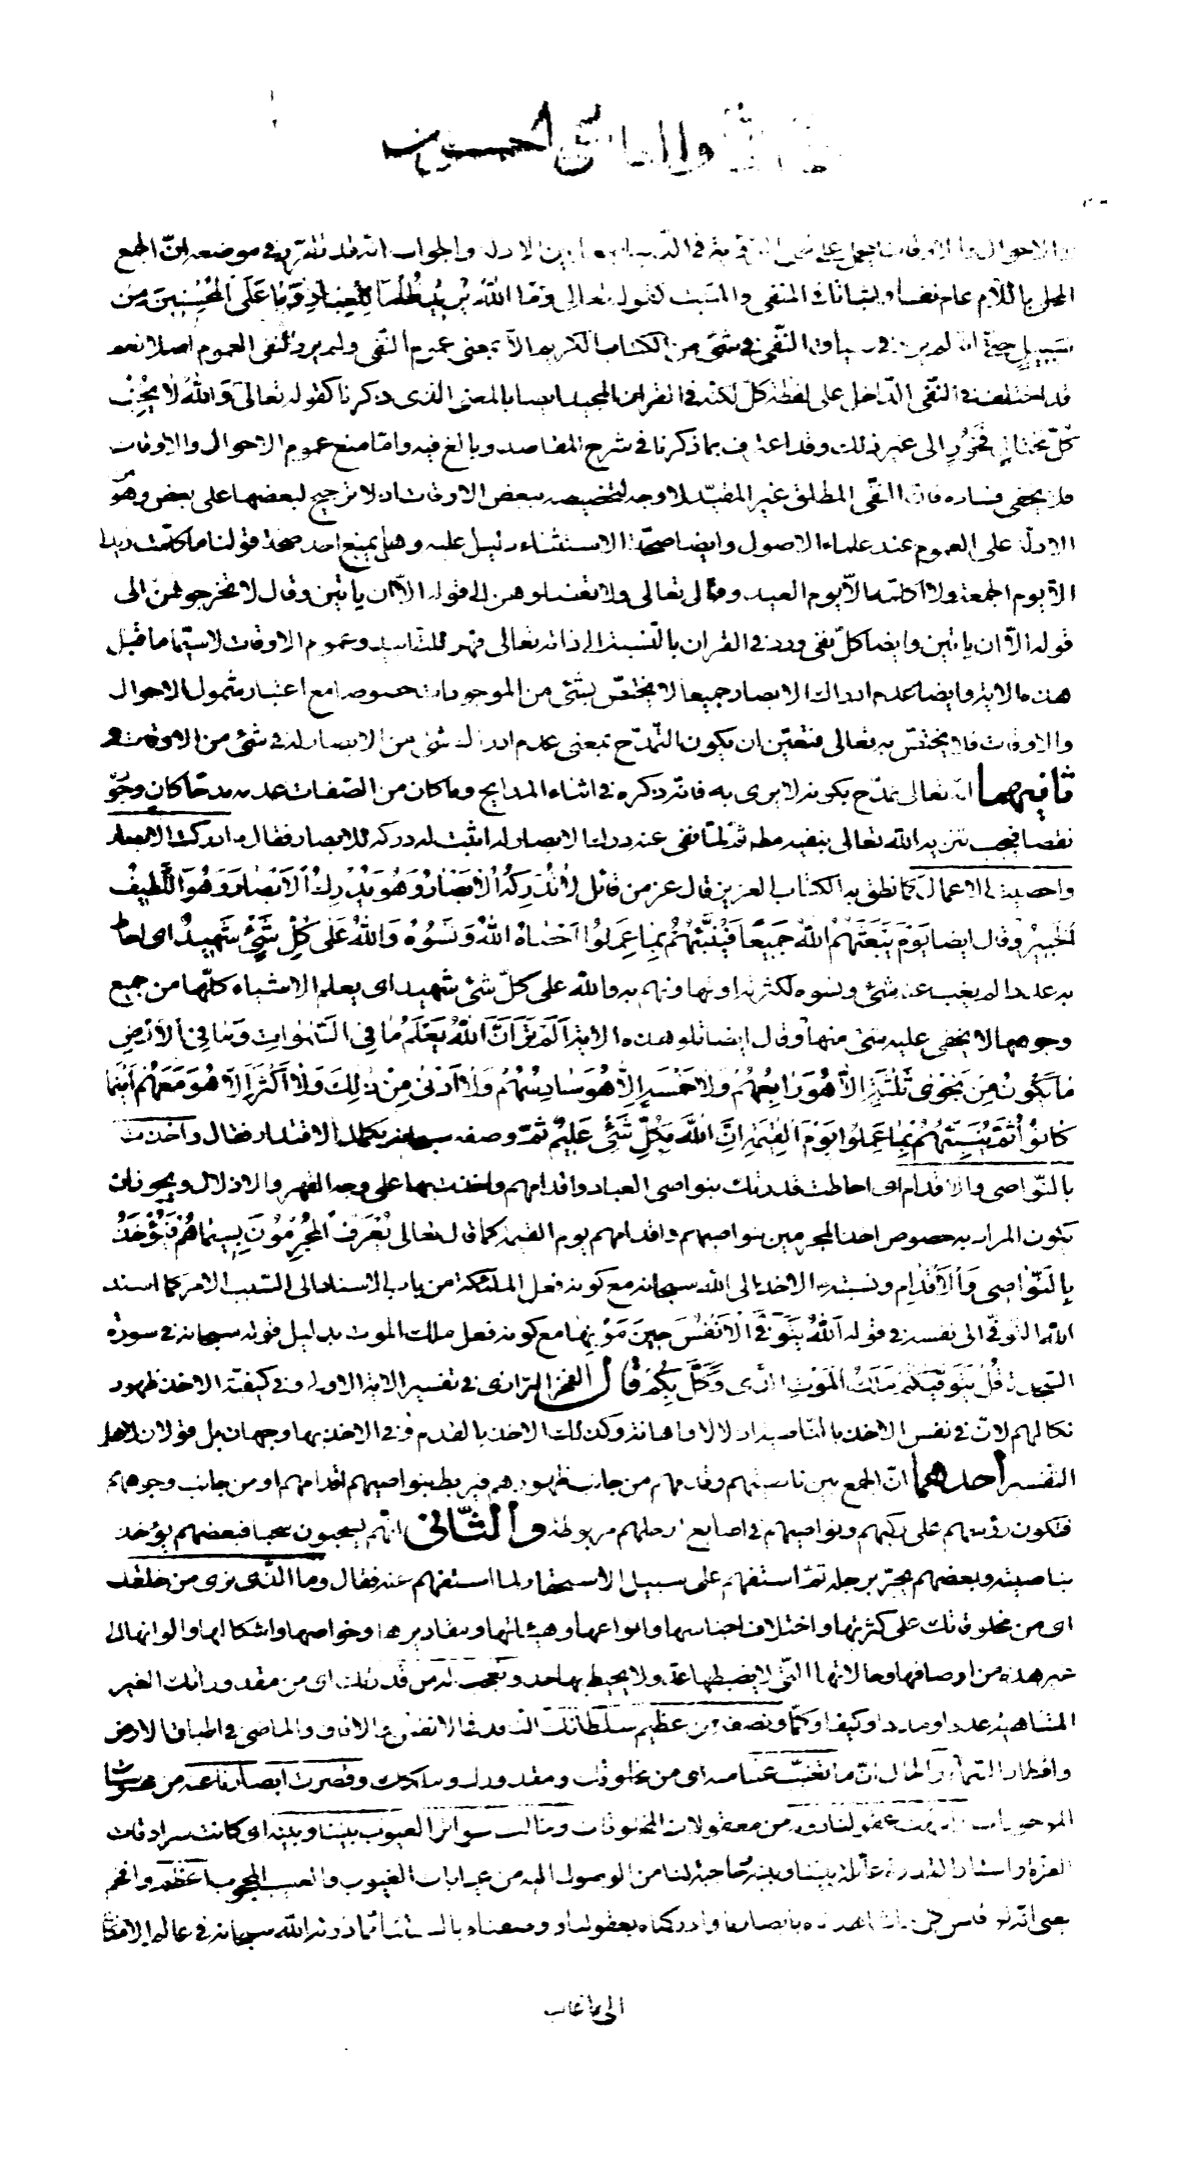 والاحوال والاوقات فيحمل على نفي الرؤية في الدنيا جمعا بين الادلة والجواب انه قد تقرر في موضعه ان الجمع
المحلى باللام عام نفيا واثباتا في المنفى والمثبت كقوله تعالى وَمَا اللهُ يُرِيدُ ظُلْمًا لِلْعِبَادِ وَمَا عَلَى الْمُحْسِنِينَ مِنْ
سَبِيلٍ حتى انه لم يرد في سياق النفى في شئ من الكتاب الكريم الا بمعنى عموم النفى ولم يرد لنفى العموم اصلا نعم
قد اختلف في النّفى الدّاخل على لفظة كلّ لكنه في القران المجيد ايضا بالمعنى الذى ذكرنا كقوله تعالى وَاللهُ لا يُحِبُّ
كُلَّ مُخْتَالٍ فَخُورٍ الى غير ذلك وقد اعترف بما ذكرنا في شرح المقاصد وبالغ فيه وامّا منع عموم الاحوال والاوقات
فلا يخفى فساده فان النّفى المطلق غير المقيّد لا وجه لتخصيصه ببعض الاوقات اذ لا ترجيح لبعضها على بعض وهو
الادلّة على العموم عند علماء الاصول وايضا صحّة الاستثناء دليل عليه وهل يمنع احد صحة قولنا ما كلّمت زيدا
الّا يوم الجمعة ولا اكلّمه الّا يوم العيد وقال تعالى ولا تعضلوهن الى قوله الّا ان ياتين وقال لا تخرجوهنّ الى
قوله الّا ان ياتين وايضا كلّ نفى ورد في القران بالنّسبة الى ذاته تعالى فهو للتّابيد وعموم الاوقات لا سيّما ما قبل
هذه الاية وايضا عدم ادراك الابصار جميعا لا يختصّ بشئ من الموجودات خصوصا مع اعتبار شمول الاحوال
والاوقات فلا يختصّ به تعالى فتعيّن ان يكون التّمدّح بمعنى عدم ادراك شئ من الابصار له في شئ من الاوقات و
ثانيهما انّه تعالى تمدّح بكونه لا يرى به فانّه ذكره في اثناء المدايح وما كان من الصّفات عدمه مدحا كان وجوده
نقصا فيجب تنزيه الله تعالى بنفيه مطلقا ثمّ لمّا نفى عنه درك الابصار له اثبت له دركه للابصار فقال ادركت الابصار
واحصيت الاعمال كما نطق به الكتاب العزيز قال عز من قائل لا تُدْرِكُهُ الْأَبْصَارُ وَهُوَ يُدْرِكُ الْأَبْصَارَ وَهُوَ اللَّطِيفُ
الْخَبِيرُ وقال ايضا يَوْمَ يَبْعَثُهُمُ اللهُ جَمِيعًا فَيُنَبِّئُهُمْ بِمَا عَمِلُوا أَحْصَاهُ اللهُ وَنَسُوهُ وَاللهُ عَلَى كُلِّ شَيْءٍ شَهِيدٌ اى احاط
به عددا لم يغب عنه شئ ونسوه لكثرته او تهاونهم به والله على كلّ شئ شهيد اى يعلم الاشياء كلّها من جميع
وجوهها لا يخفى عليه شئ منها وقال ايضا تلو هذه الاية أَلَمْ تَرَ أَنَّ اللهَ يَعْلَمُ مَا فِي السَّمٰوَاتِ وَمَا فِي الْأَرْضِ
مَا يَكُونُ مِنْ نَجْوَى ثَلٰثَةٍ إِلَّا هُوَ رَابِعُهُمْ وَلا خَمْسَةٍ إِلَّا هُوَ سَادِسُهُمْ وَلا أَدْنٰى مِنْ ذٰلِكَ وَلا أَكْثَرَ إِلَّا هُوَ مَعَهُمْ أَيْنَمَا
كَانُوا ثُمَّ يُنَبِّئُهُمْ بِمَا عَمِلُوا يَوْمَ الْقِيٰمَةِ إِنَّ اللهَ بِكُلِّ شَيْءٍ عَلِيمٌ ثمّ وصفه سبحانه بكمال الاقتدار فقال واخذت
بالنّواصى والاقدام اى احاطت قدرتك بنواصى العباد واقدامهم واخذت بها على وجه القهر والاذلال ويجوز ان
يكون المراد به خصوص اخذ المجرمين بنواصيهم واقدامهم يوم القيمة كما قال تعالى يُعْرَفُ الْمُجْرِمُونَ بِسِيمَاهُمْ فَيُؤْخَذُ
بِالنَّوَاصِي وَالْأَقْدَامِ ونسبته الاخذ الى الله سبحانه مع كونه فعل الملئكة من باب الاسناد الى السّبب الامر كما اسند
الله التوفّى الى نفسه في قوله اللهُ يَتَوَفَّى الْأَنْفُسَ حِينَ مَوْتِهَا مع كونه فعل ملك الموت بدليل قوله سبحانه في سورة
السّجدة قُلْ يَتَوَفّٰيكُمْ مَلَكُ الْمَوْتِ الَّذِي وُكِّلَ بِكُمْ قال الفخر الرّازى في تفسير الاية الاولى وفي كيفيّة الاخذ ظهور
نكالهم لانّ في نفس الاخذ بالنّاصية اذلالا واهانة وكذلك الاخذ بالقدم وفي الاخذ بها وجهان بل قولان لاهل
التفسير احدهما انّ الجمع بين ناصيتهم وقدمهم من جانب ظهورهم فيربط بنواصيهم اقدامهم او من جانب وجوههم
فتكون رؤسهم على ركبهم ونواصيهم في اصابع ارجلهم مربوطة والثّانى انّهم يسحبون سحبا فبعضهم يؤخذ
بناصيته وبعضهم يجرّ برجله ثمّ استفهم على سبيل الاستحقار لما استفهم عنه فقال وما الّذى نرى من خلقك
اى من مخلوقاتك على كثرتها واختلاف اجناسها وانواعها وهيئاتها ومقاديرها وخواصها واشكالها والوانها الى
غير هذه من اوصافها وحالاتها الّتى لا يضبطها عدّ ولا يحيط بها حد ونعجب له من قدرتك اى من مقدوراتك الغير
المتناهية عددا ومددا وكيفا وكمّا ونصفه من عظيم سلطانك النّافذ في الانفس والافاق والماضى في اطباق الارض
واقطار السّماء والحال انّ ما تغيّب عنا منه اى من مخلوقك ومقدورك وملكك وقصرت ابصارنا عنه من محسوسات
الموجودات وانتهت عقولنا دونه من معقولات المخلوقات وحالت سواتر الغيوب بيننا وبينه اى كانت سرادقات
العزّة واستار القدرة حائلة بيننا وبينه حاجبة لنا من الوصول اليه من غيابات الغيوب والغيب المحجوب اعظم وافخم
يعنى انّه لو قيس ما شاهدناه بابصارنا وادركناه بعقولنا ووصفناه بالسنتنا ممّا ذرئه الله سبحانه في عالم الامكان
الى ما غاب